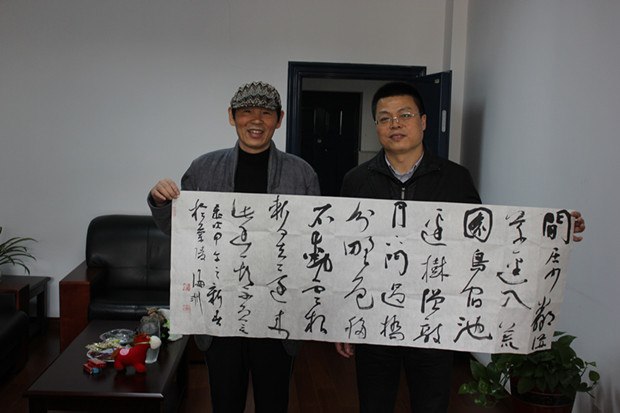 閒居少鄰並
草逕入荒
園鳥宿池
邊樹僧敲
月下門過橋
分野色移
石動雲根
暫去還來
此幽期不負言
歲次甲午之新春
於